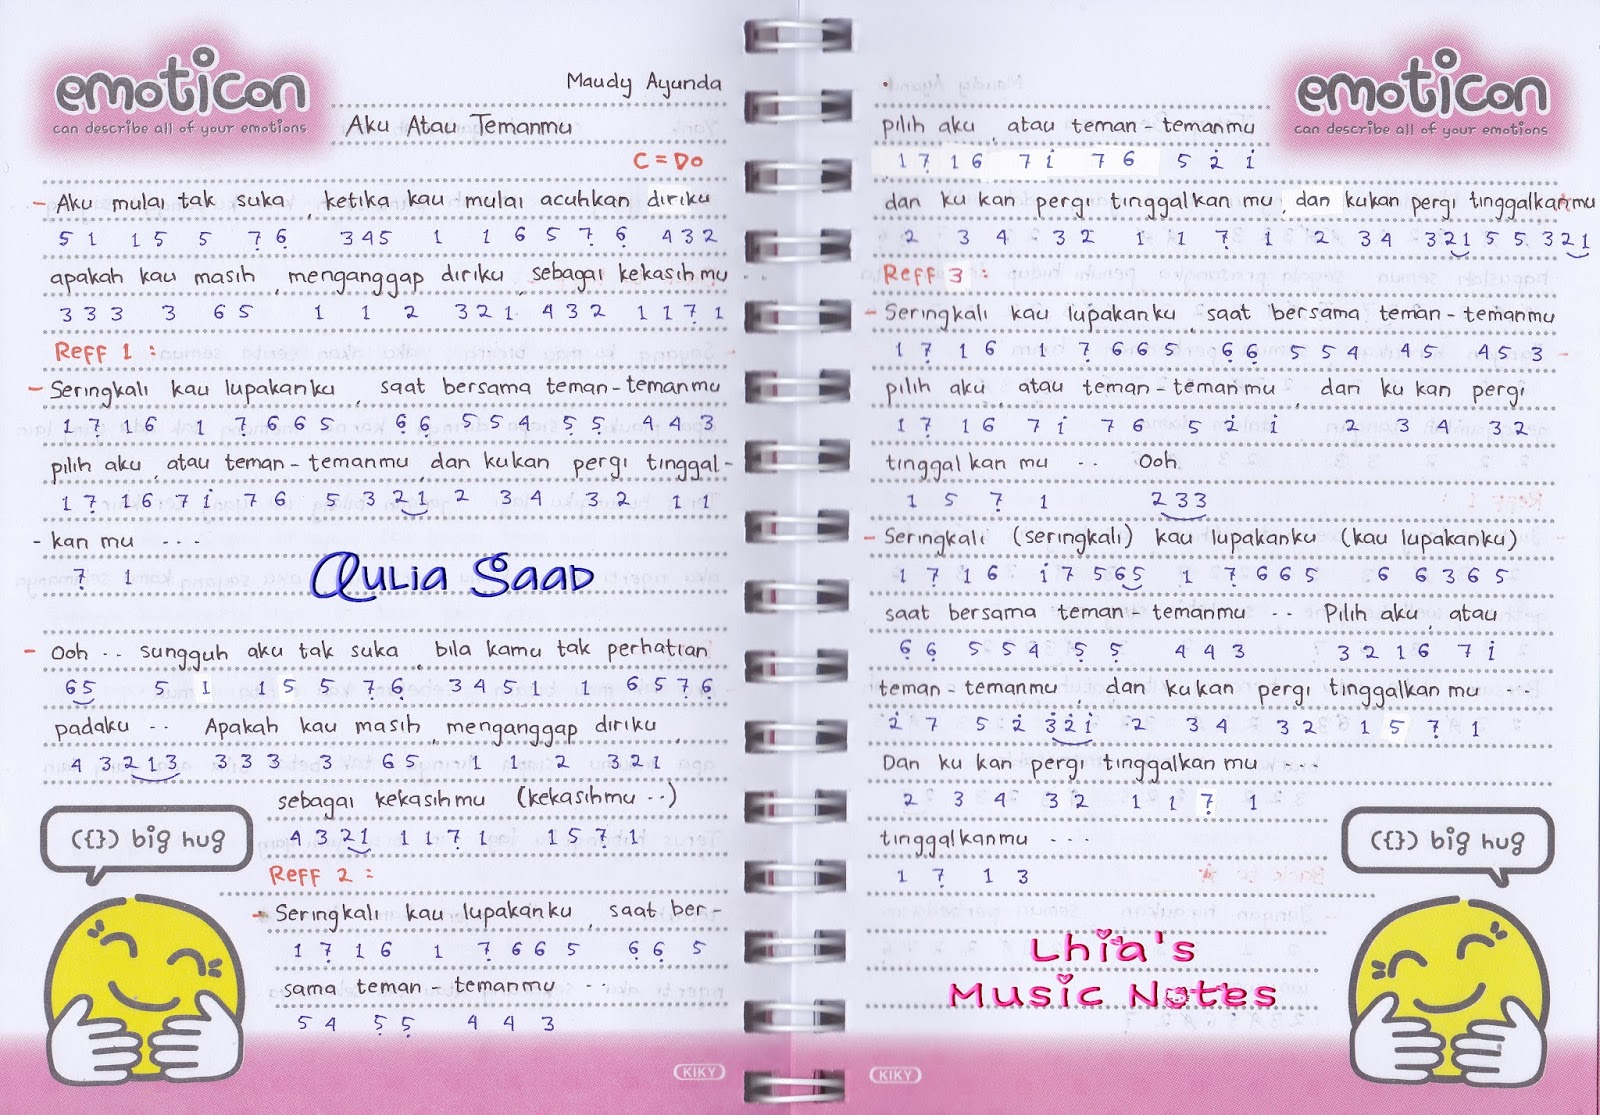 emoticon
can describe all of your emotions
Maudy Ayunda
Aku Atau Temanmu
C = Do
- Aku mulai tak suka , ketika kau mulai acuhkan diriku
5 1 1 5 5 7̣ 6̣ 3 4 5 1 1 6 5 7̣ 6̣ 4 3 2
apakah kau masih , menganggap diriku , sebagai kekasihmu ..
3 3 3 3 6 5 1 1 2 3 2 1 4 3 2 1 1 7̣ 1
Reff 1 :
- Seringkali kau lupakanku , saat bersama teman-temanmu
1 7̣ 1 6 1 7̣ 6 6 5 6̣ 6̣ 5 5 4 5̣ 5̣ 4 4 3
pilih aku , atau teman-temanmu , dan kukan pergi tinggal-
1 7̣ 1 6 7 i 7 6 5 3 2 1 2 3 4 3 2 1 1
- kan mu ...
7̣ 1
Aulia Saad
- Ooh .. sungguh aku tak suka , bila kamu tak perhatian
6 5 5 1 1 5 5 7̣ 6̣ 3 4 5 1 1 6 5 7̣ 6̣
padaku .. Apakah kau masih , menganggap diriku ,
4 3 2 1 3 3 3 3 3 6 5 1 1 2 3 2 1
sebagai kekasihmu (kekasihmu ..)
4 3 2 1 1 1 7̣ 1 1 5 7̣ 1
Reff 2 :
- Seringkali kau lupakanku , saat ber-
1 7̣ 1 6 1 7̣ 6 6 5 6̣ 6̣ 5
sama teman-temanmu ..
5 4 5̣ 5̣ 4 4 3
({}) big hug
KIKY
emoticon
can describe all of your emotions
pilih aku , atau teman-temanmu
1 7̣ 1 6 7 i 7 6 5 2̇ i
dan ku kan pergi tinggalkan mu , dan kukan pergi tinggalkanmu
2 3 4 3 2 1 1 7̣ 1 2 3 4 3 2 1 5 5 3 2 1
Reff 3 :
- Seringkali kau lupakanku , saat bersama teman-temanmu
1 7̣ 1 6 1 7̣ 6 6 5 6̣ 6̣ 5 5 4 4 5 4 5 3
pilih aku , atau teman-temanmu , dan ku kan pergi
1 7̣ 1 6 7 i 7 6 5 2̇ i 2 3 4 3 2
tinggal kan mu .. Ooh
1 5 7̣ 1 2 3 3
- Seringkali (seringkali) kau lupakanku (kau lupakanku)
1 7̣ 1 6 i 7 5 6 5 1 7̣ 6 6 5 6 6 3 6 5
saat bersama teman-temanmu .. Pilih aku , atau
6̣ 6̣ 5 5 4 5̣ 5̣ 4 4 3 3 2 1 6 7 i
teman-temanmu , dan kukan pergi tinggalkan mu ...
2̇ 7 5 2̇ 3̇ 2̇ i 2 3 4 3 2 1 5 7̣ 1
Dan ku kan pergi tinggalkan mu ...
2 3 4 3 2 1 1 7̣ 1
tinggalkanmu ...
1 7̣ 1 3
Lhia's
Music Notes
({}) big hug
KIKY